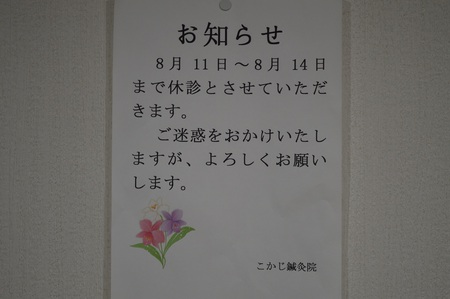 お知らせ
8月 11日～8月 14日
まで休診とさせていただ
きます。
ご迷惑をおかけいたし
ますが、よろしくお願い
します。
こかじ鍼灸院